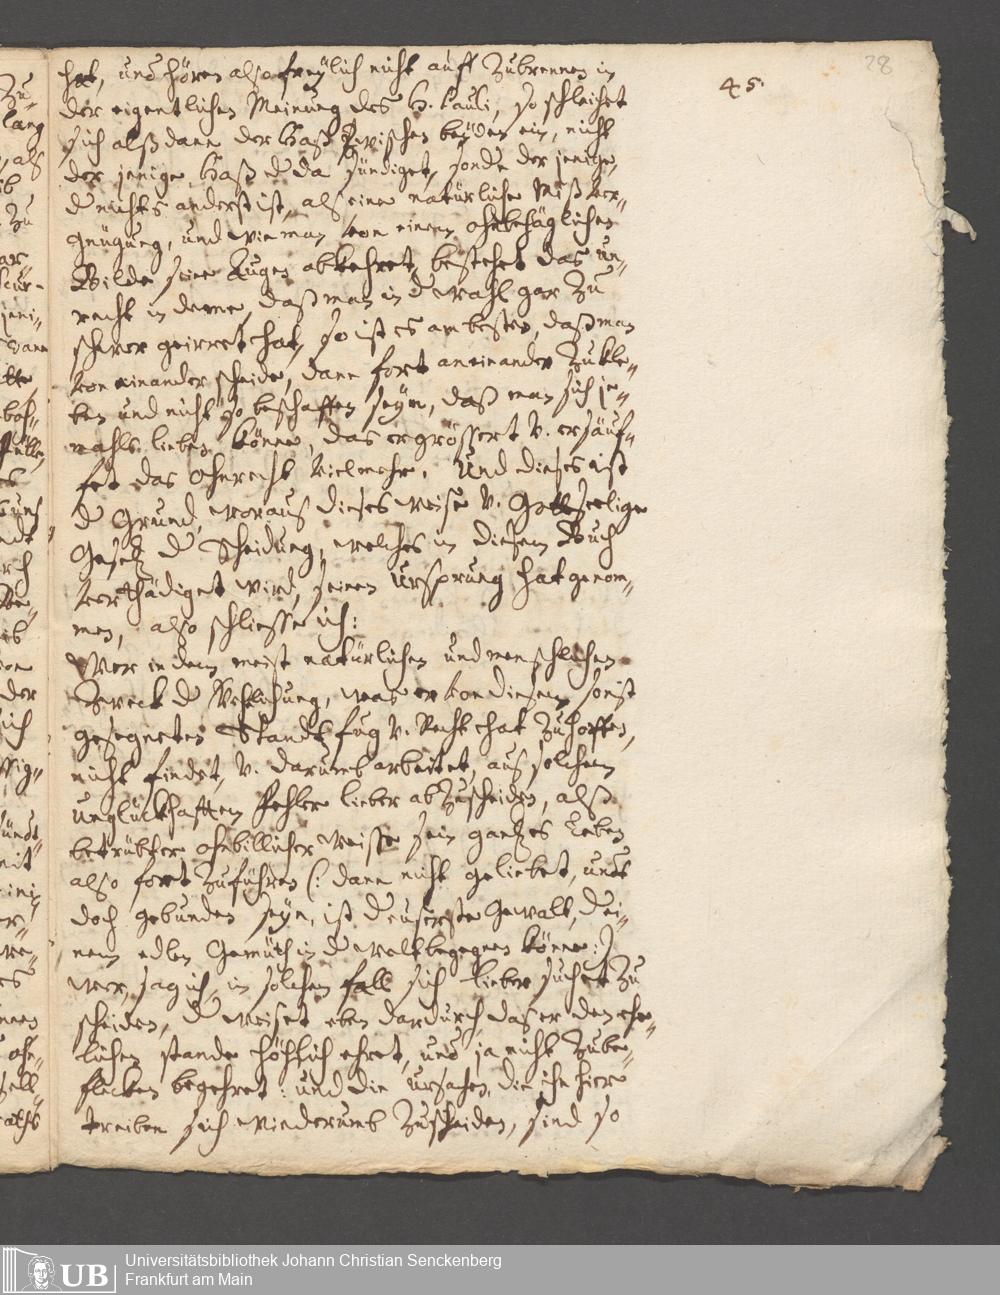 45.
28
hat, und hören also freÿlich nicht auff Zubrennen in
der eigentlichen Meinung des H. Pauli, so schleichet
sich alß dann der Haß Zwischen beÿden ein, nicht
der jenige Haß d da sündiget, sonde der jenige,
d nichts anderst ist, als eine natürliche Miß ver-
gnügung, und wie man von einem ohnbehäglichen
Bilde seine Augen abkehret, bestehet das un-
recht in deme, daß man in d wahl gar Zu
schwer geirret hat, so ist es am besten, daß man
von einander scheide, dann fort aneinander Zukle-
ben und nicht so beschaffen seÿn, daß man sich je-
mahls lieben könne, das ergrössert v. ersäuf-
fet das ohnrecht vielmehr. Und dieses ist
d Grund, woraus dieses weise v. Gottseelige
Gesetz d Scheidung, welches in diesem Buch
verthädiget wird, seinen Ursprung hat genom-
men, also schliesse ich:
Wer in dem meist natürlichen und menschlichen
Zweck d Ehlichung, was er von diesem sonst
gesegneten Standt fug v. Recht hat Zuhoffen,
nicht findet, v. darumb arbeitet, aus solchem
unglückhafften Fehler lieber abZuscheiden, alß
betrübter ohnbillicher weisse sein gantzes Leben
also fort Zuführen (: dann nicht geliebet, und
doch gebunden seÿn, ist d euserste Gewalt, d ei-
nem edlen Gemüth in d welt begegnen könne :)
wer, sag ich, in solchem fall sich lieber suchet Zu
scheiden, d weiset eben dardurch, das er den ehe-
lichen stande höchlich ehret, und ja nicht Zube-
flecken begehret: und die ursachen, die ihn hier
treiben sich wiederumb Zuscheiden, sind so
UB
Universitätsbibliothek Johann Christian Senckenberg
Frankfurt am Main